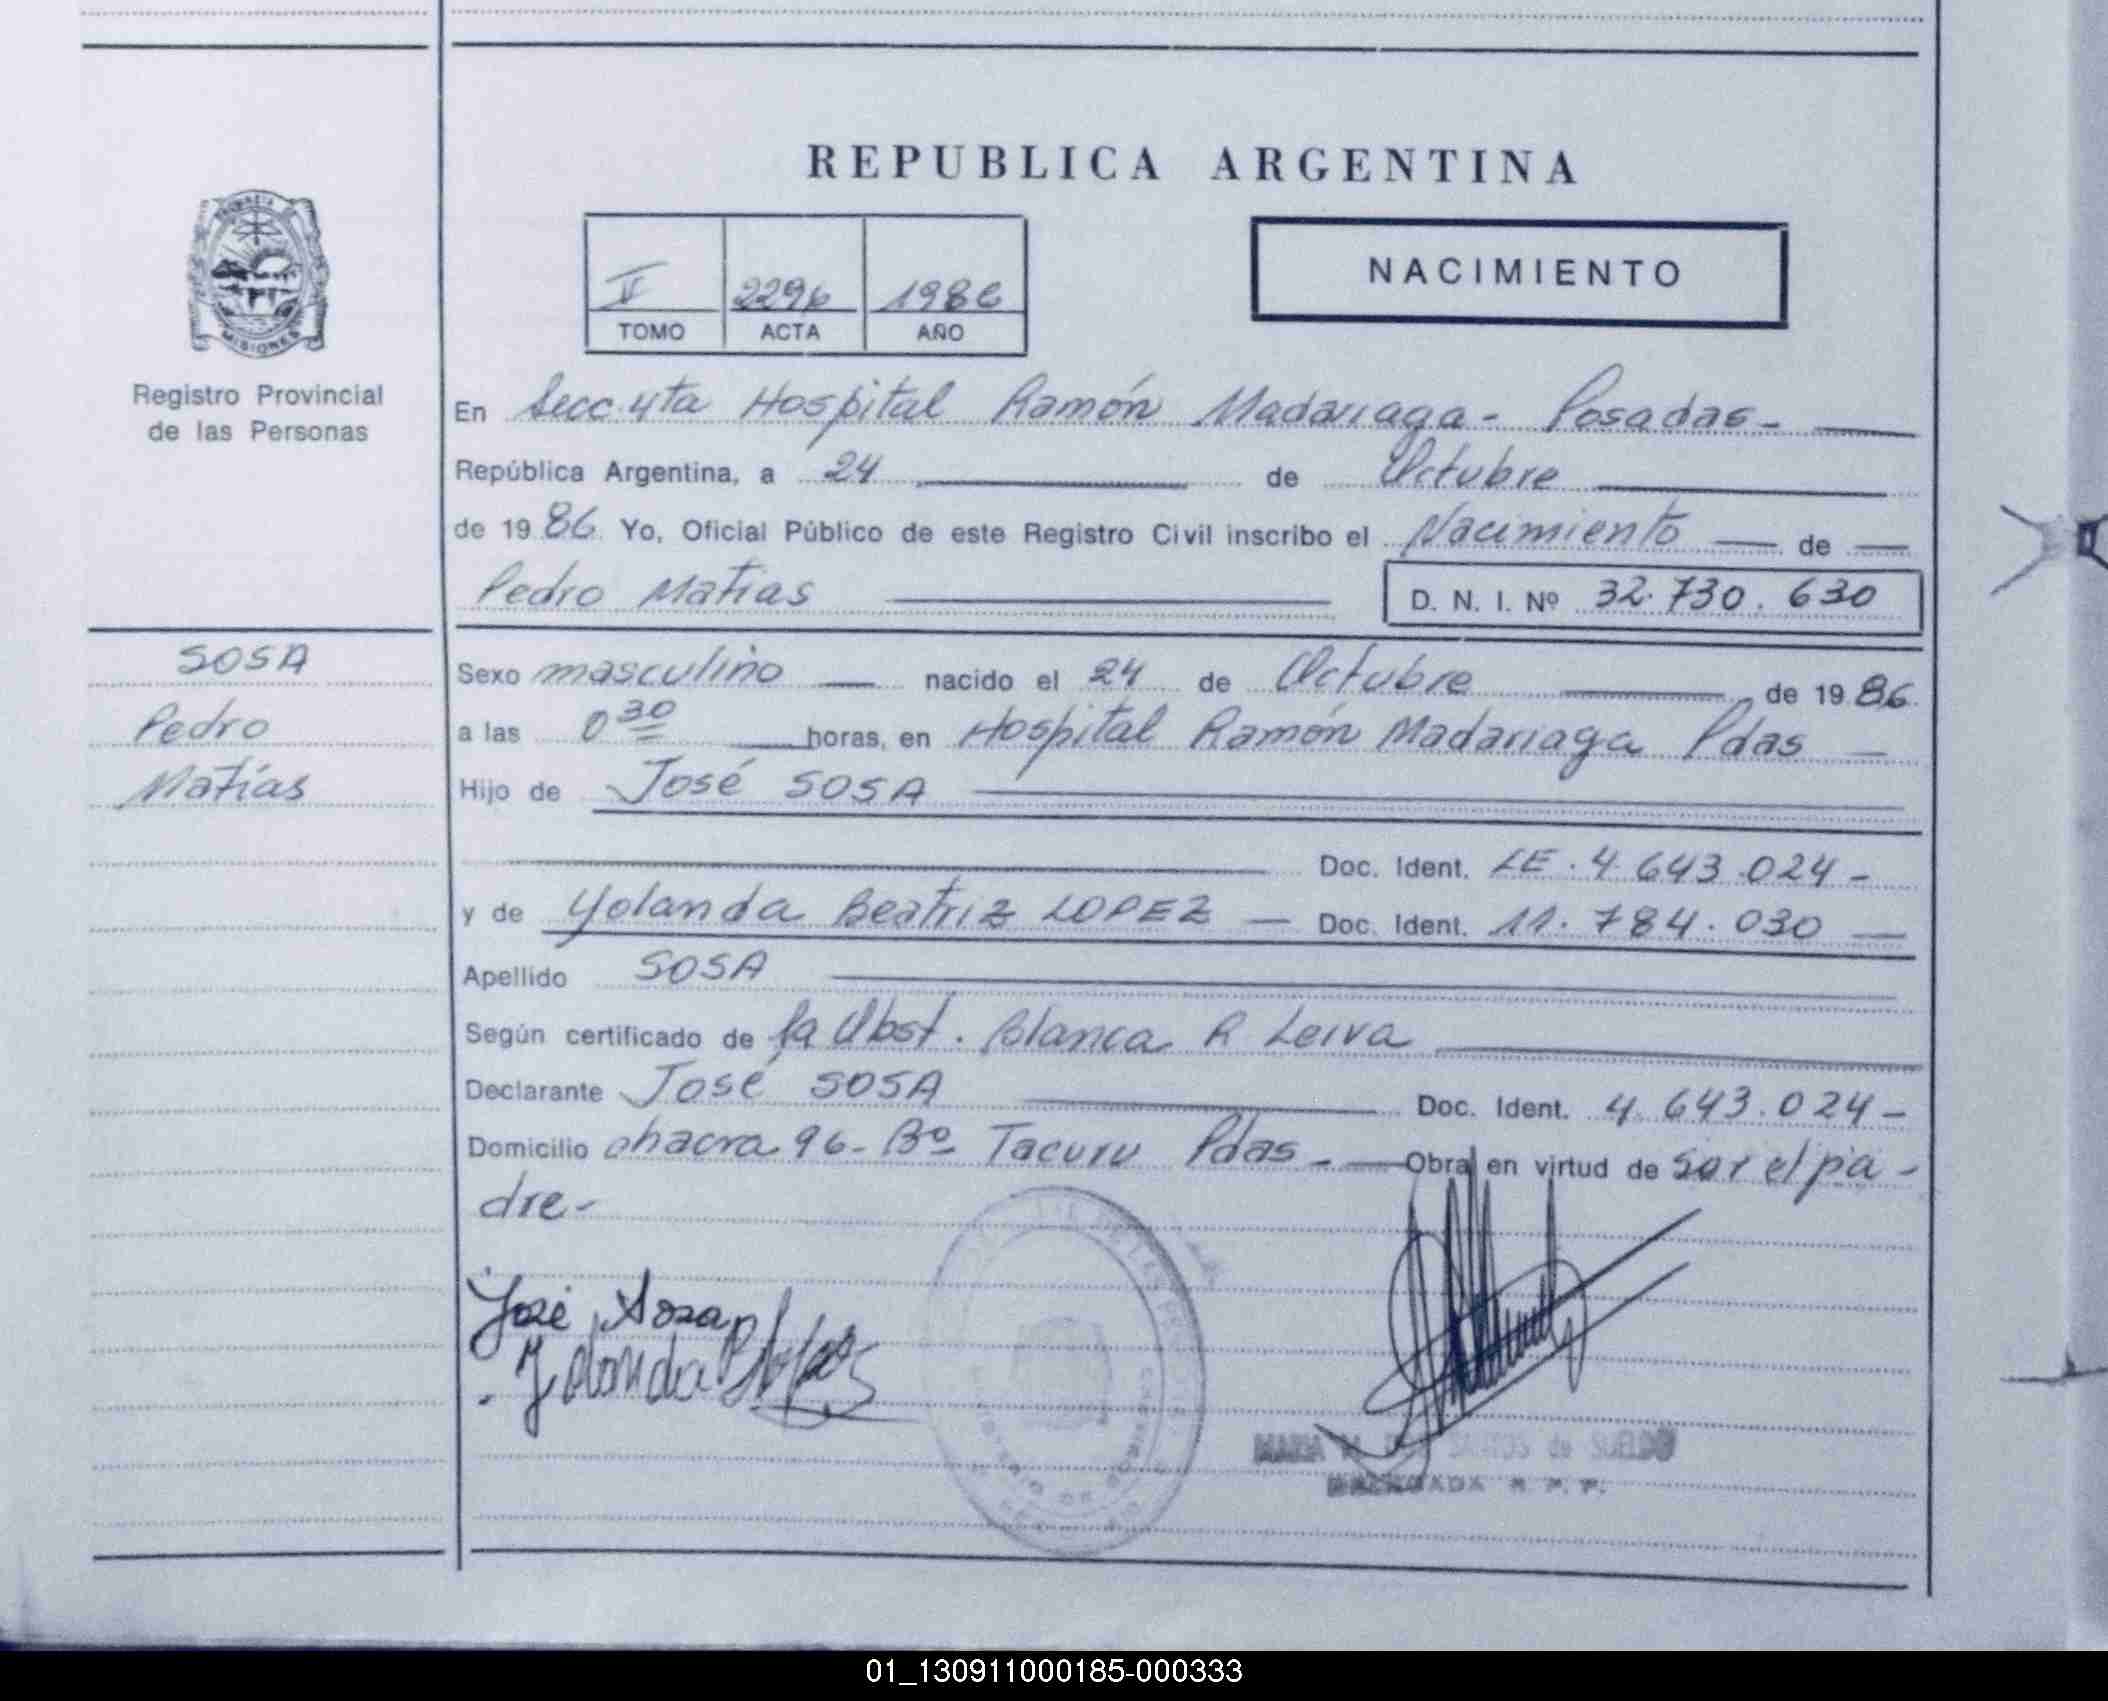 REPUBLICA ARGENTINA
PROVINCIA
MISIONES
Registro Provincial
de las Personas
II 2296 1986
TOMO ACTA AÑO
NACIMIENTO
En Secc. 4ta Hospital Ramón Madariaga - Posadas -
República Argentina, a 24 de Octubre
de 1986. Yo, Oficial Público de este Registro Civil inscribo el Nacimiento de
Pedro Matias D. N. I. Nº 32.730.630
SOSA
Pedro
Matías
Sexo masculino nacido el 24 de Octubre de 1986.
a las 0 30 horas, en Hospital Ramón Madariaga Pdas
Hijo de José SOSA
Doc. Ident. LE. 4.643.024-
y de Yolanda Beatriz LOPEZ Doc. Ident. 11.784.030
Apellido SOSA
Según certificado de la Obst. Blanca R Leiva
Declarante José SOSA Doc. Ident. 4.643.024-
Domicilio chacra 96 - Bº Tacuru Pdas - Obra en virtud de ser el pa-
dre-
José Sosa
Yolanda B López
MINISTERIO DE GOBIERNO
MARIA M. DOS SANTOS de SUELDO
DELEGADA R. P. P.
01_130911000185-000333